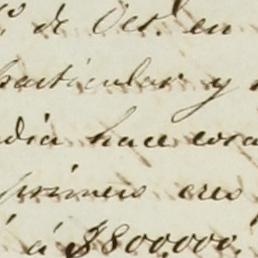 º de Oct. en
particular y
dia hace
primero creo
á $800,000.